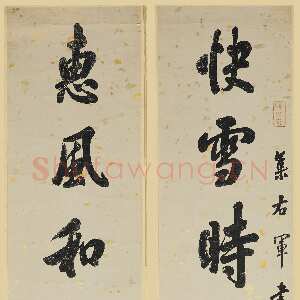 快雪時
集右軍
惠風和
ShufaWang.CN